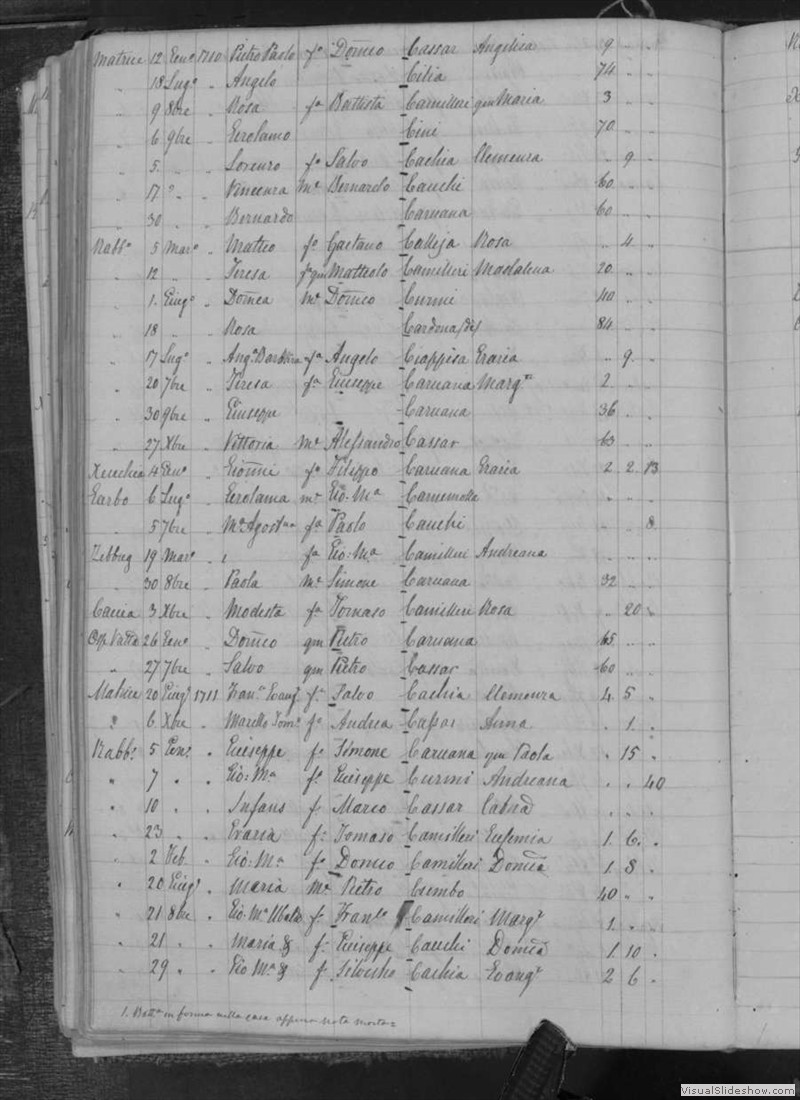 Matrice 12 Gen° 1710 Pietro Paolo f° Dom̄co Cassar Angelica 9 " "
" 18 Lug° " Angelo Cilia 74 " "
" 9 8bre " Rosa fa Battista Camilleri qm Maria 3 " "
" 6 9bre " Gerolamo Cini 70 " "
" 5 " " Lorenzo f° Salvo Cachia Clemenza " 9 "
" 17 " " Vincenza Me Bernardo Cauchi 60 " "
" 30 " " Bernardo Caruana 60 " "
Rabbo 5 Mar° " Matteo f° Gaetano Calleja Rosa " 4 "
" 12 " " Teresa fa qm Matteolo Camilleri Madalena 20 " "
" 1. Giug° " Dom̄ca Me Dom̄co Curmi 40 " "
" 18 " " Rosa Cardona 84 " "
" 17 Lug° " Anga Barbara fa Angelo Ciappisa Grazia " 9 "
" 20 7bre " Teresa fa Giuseppe Caruana Margta 2 " "
" 30 9bre " Giuseppe Caruana 36 " "
" 27 Xbre " Vittoria Me Alessandro Cassar 63 " "
14 Gen° " Gionni f° Filippo Caruana Grazia 2 2 13
Garbo 6 Lug° " Gerolama me Gio: Ma " " "
" 5 7bre " Ma Agostna fa Paolo Cauchi " " 8
Zebbug 19 Mar° " 1 fa Gio: Ma Camilleri Andreana " " "
" 30 8bre " Paola Me Simone Caruana 32 " "
Caccia 3 Xbre " Modesta fa Tomaso Camilleri Rosa " 20 "
26 Gen° " Dom̄co qm Pietro Caruana 65 " "
" 27 7bre " Salvo qm Pietro Cassar 60 " "
Matrice 20 Giug° 1711 Franca Evanga fa Salvo Cachia Clemenza 4 5 "
" 6 Xbre " fa Andrea Caſsar Anna " 1 "
Rabbo 5 Gen° " Giuseppe f° Simone Caruana qm Paola " 15 "
" 7 " " Gio: Ma f° Giuseppe Curmi Andreana " " 40
" 10 " " Infans f° Marco Cassar " " "
" 23 " " Grazia fa Tomaso Camilleri Eufemia 1 6 "
" 2 Feb. " Gio: Ma f° Dom̄co Camilleri Dom̄ca 1 8 "
" 20 Giug° " Maria Me Pietro Cumbo 40 " "
" 21 8bre " Gio: Ma Ubaldo f° Franco Camilleri Margta 1 " "
" 21 " " Maria & fa Giuseppe Cauchi Dom̄ca 1 10 "
" 29 " " Gio Ma & f° Silvestro Cachia Evanga 2 6 "
1. Batta in forma nella casa appena nata morta =
VisualSlideshow.com